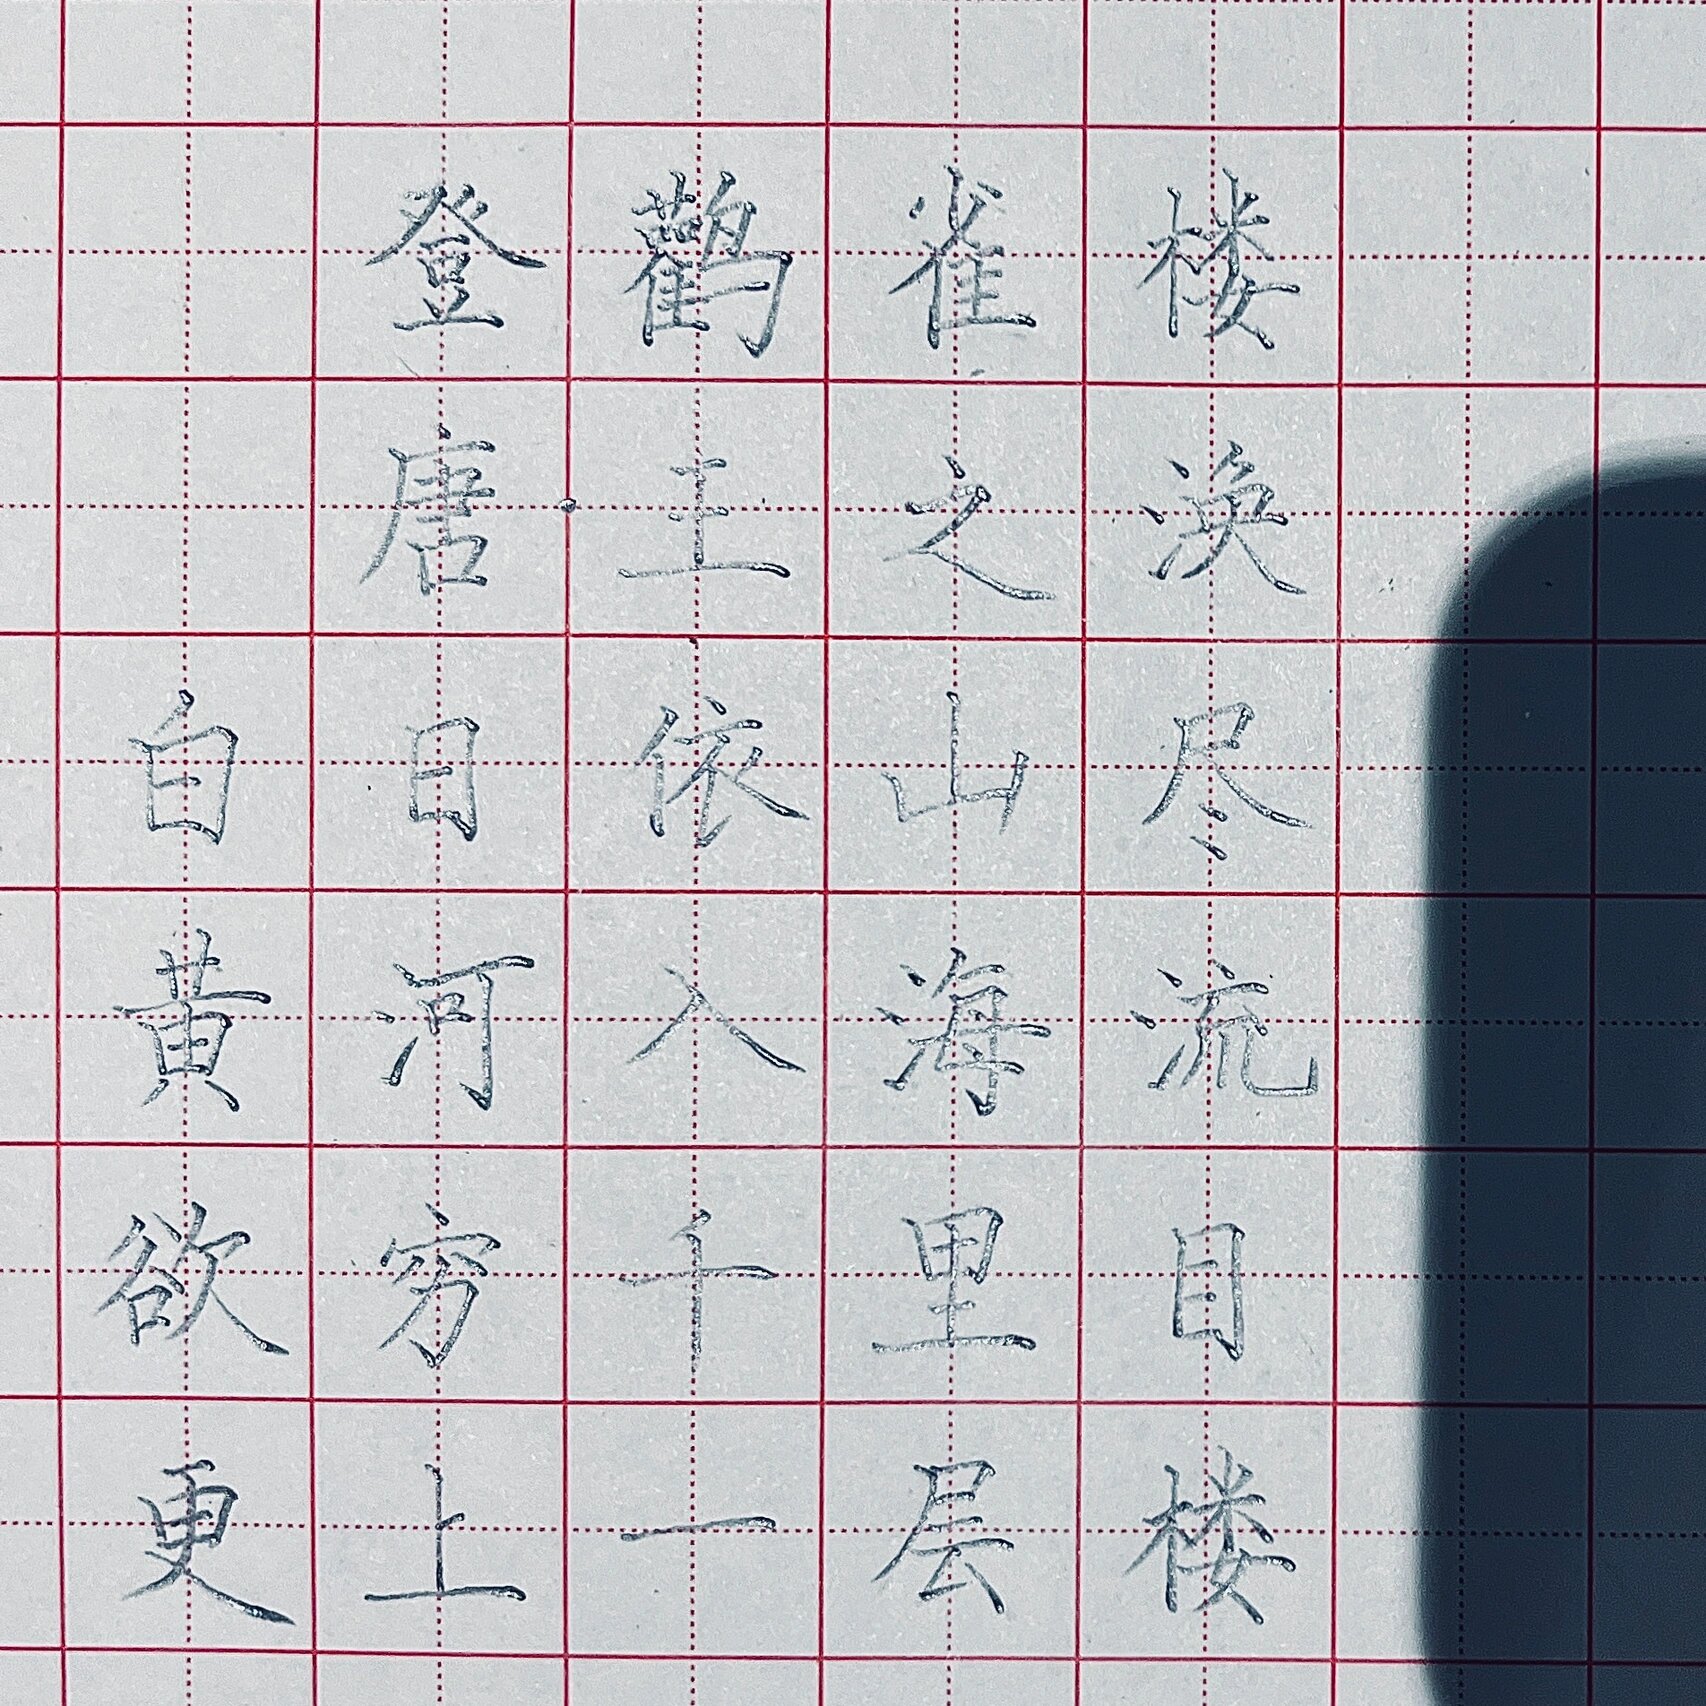 登鸛雀楼
唐王之涣
白日依山尽
黄河入海流
欲穷千里目
更上一层楼